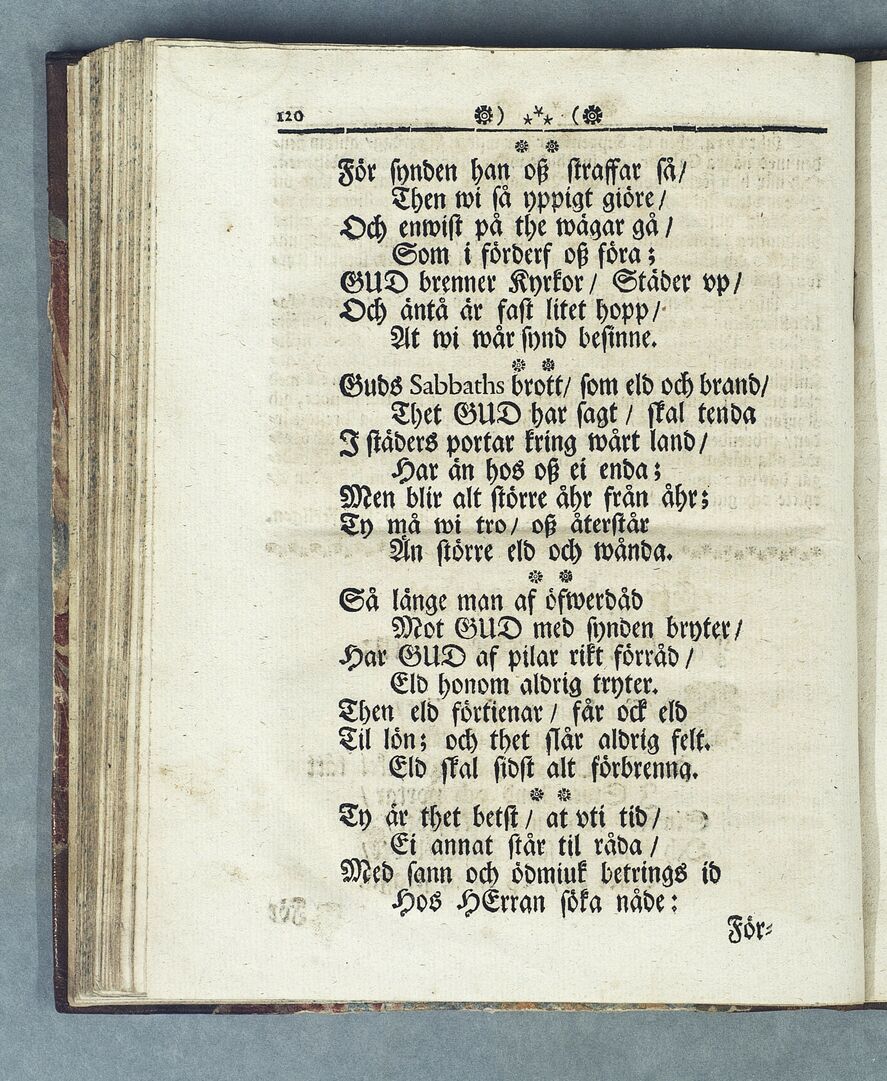 120
För synden han oß straffar så/
Then wi så yppigt giöre/
Och enwist på the wägar gå/
Som i förderf oß föra;
GUD brenner Kyrkor/ Städer vp/
Och äntå är fast litet hopp/
At wi wår synd besinne.
Guds Sabbaths brott/ som eld och brand/
Thet GUD har sagt/ skal tenda
I städers portar kring wårt land/
Har än hos oß ei enda;
Men blir alt större åhr från åhr;
Ty må wi tro/ oß återstår
Än större eld och wånda.
Så länge man af öfwerdåd
Mot GUD med synden bryter/
Har GUD af pilar rikt förråd/
Eld honom aldrig tryter.
Then eld förtienar/ får ock eld
Til lön; och thet slår aldrig felt.
Eld skal sidst alt förbrenna.
Ty är thet betst/ at vti tid/
Ei annat står til råda/
Med sann och ödmiuk betrings id
Hos HErran söka nåde:
För-